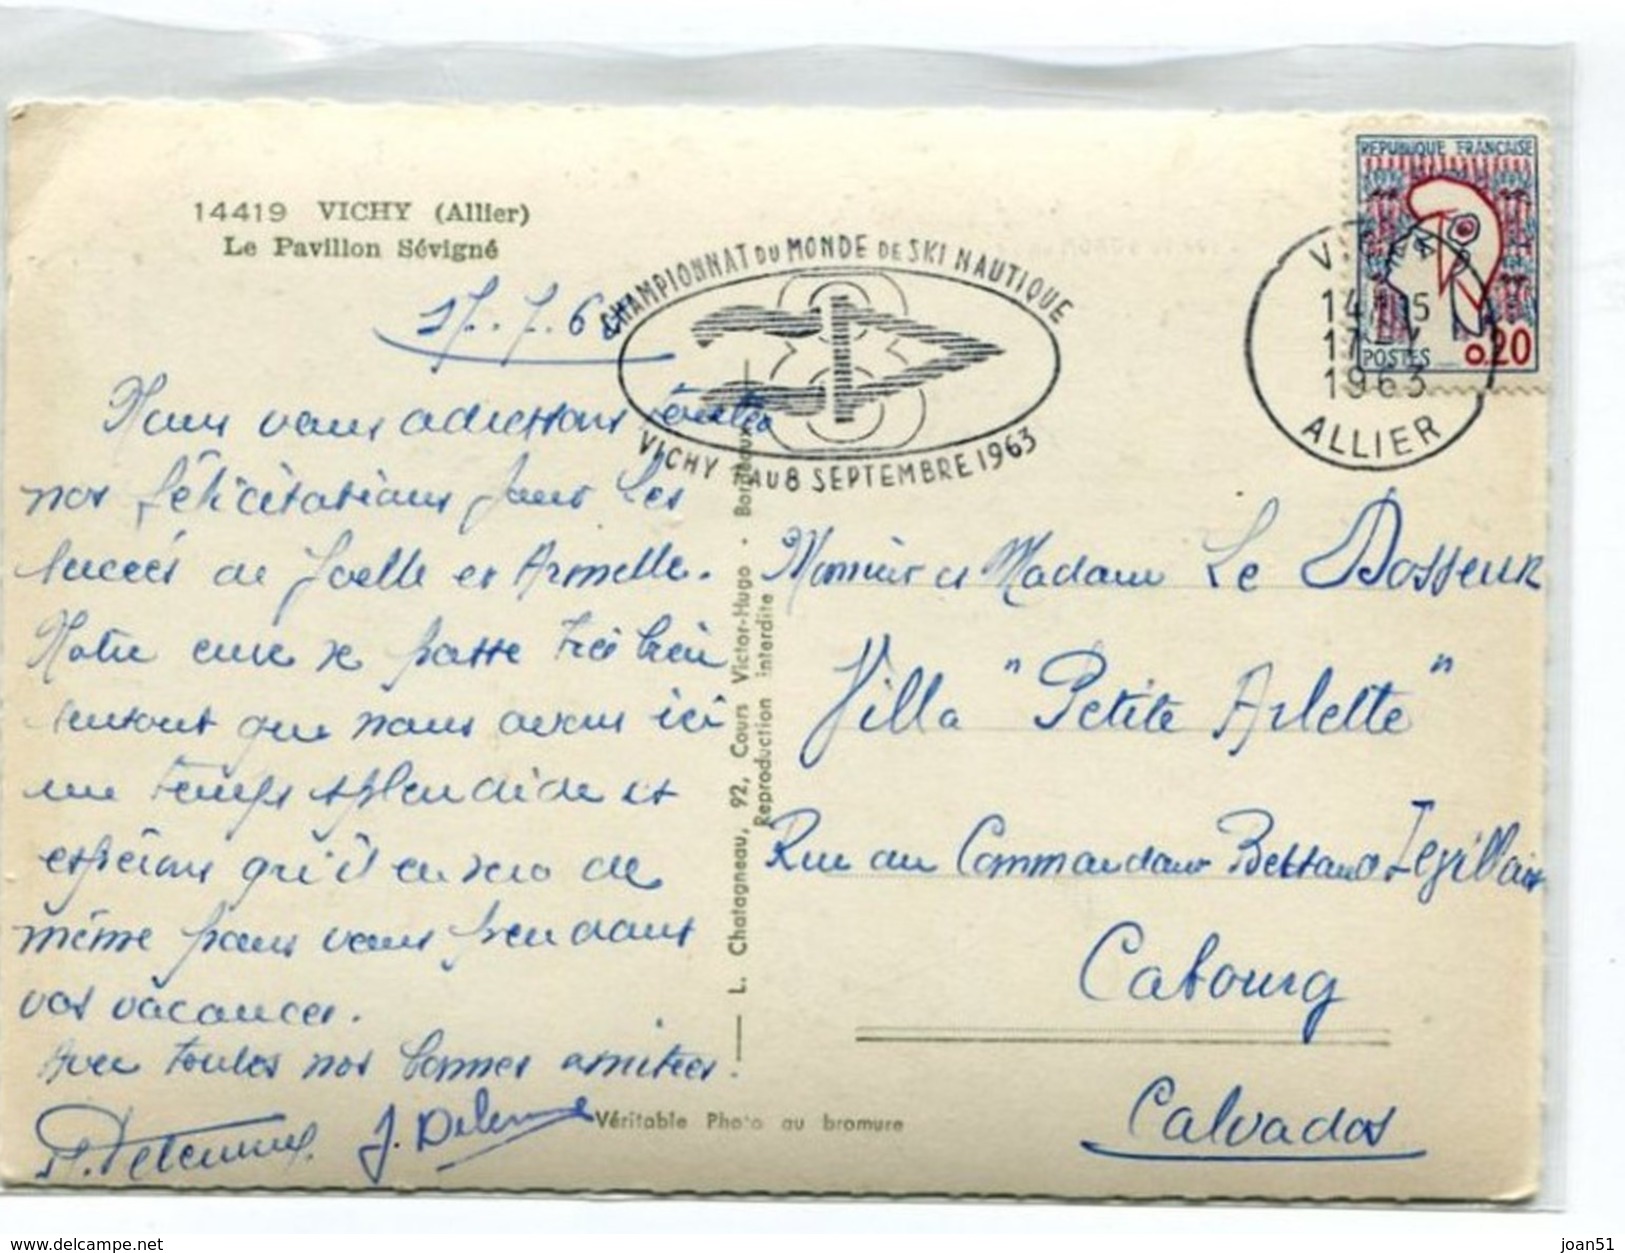 14419 VICHY (Allier)
Le Pavillon Sévigné
17.7.63
Nous vous adressons toutes
nos félicitations pour les
succès de Joelle et Armelle.
Notre cure se passe très bien
surtout que nous avons ici
un temps splendide et
espérons qu'il en sera de
même pour vous pendant
vos vacances.
Avec toutes nos bonnes amitiés.
J. Delerme
CHAMPIONNAT DU MONDE DE SKI NAUTIQUE
VICHY AU 8 SEPTEMBRE 1963
REPUBLIQUE FRANÇAISE
POSTES 0,20
1963
ALLIER
Monsieur et Madame Le Dosseur
Villa "Petite Arlette"
Rue du Commandant Bertrand
Cabourg
Calvados
L. Chatagneau, 92, Cours Victor-Hugo - Bordeaux
Reproduction interdite
Véritable Photo au bromure
www.delcampe.net
joan51